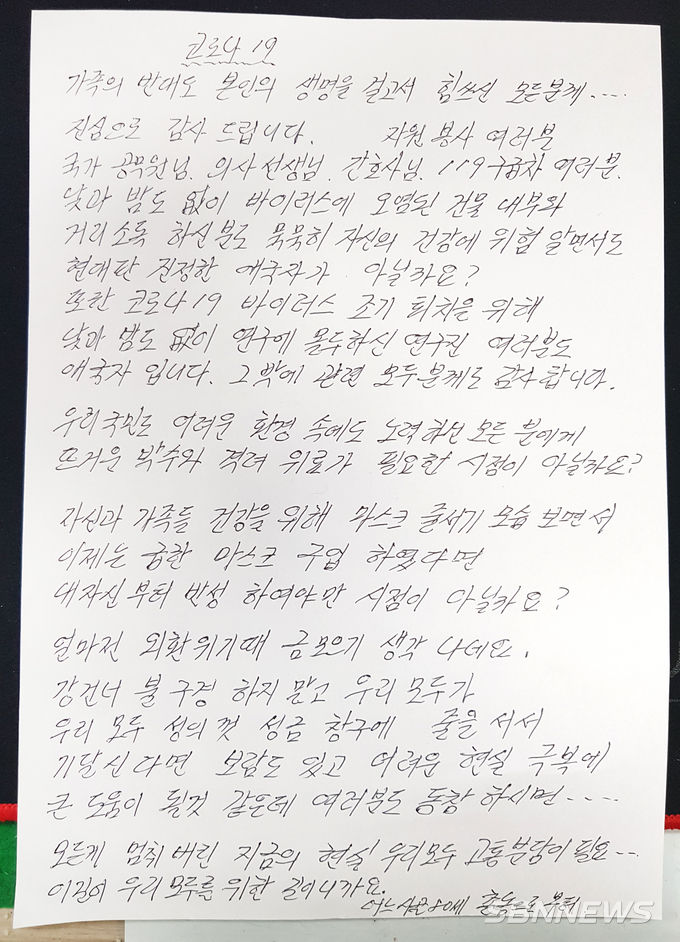 코로나 19
가족의 반대도 본인의 생명을 걸고서 힘쓰신 모든분께....
진심으로 감사 드립니다. 자원 봉사 여러분
국가 공무원님. 의사 선생님. 간호사님. 119구급차 여러분.
낮과 밤도 없이 바이러스에 오염된 건물 내부와
거리소독 하신분도 묵묵히 자신의 건강에 위험 알면서도
현대판 진정한 애국자가 아닐까요?
또한 코로나19 바이러스 조기 퇴치를 위해
낮과 밤도 없이 연구에 몰두하신 연구진 여러분도
애국자 입니다. 그 밖에 관련 모두분께도 감사합니다.
우리국민도 어려운 환경 속에도 노력하신 모든 분에게
뜨거운 박수와 격려 위로가 필요한 시점이 아닐까요?
자신과 가족들 건강을 위해 마스크 줄서기 모습 보면서
이제는 급한 마스크 구입 하였다면
내자신부터 반성 하여야만 시점이 아닐까요?
얼마전 외환위기때 금모으기 생각 나네요.
강건너 불구경 하지말고 우리 모두가
우리 모두 성의껏 성금 창구에 줄을 서서
기달신다면 보람도 있고 어려운 현실 극복에
큰 도움이 될것 같은데 여러분도 동참 하시면....
모든게 멈춰 버린 지금의 현실 우리모두 고통분담이 필요...
이길이 우리모두를 위한 길이니까요.
어느 80세 부터
SBMNEWS